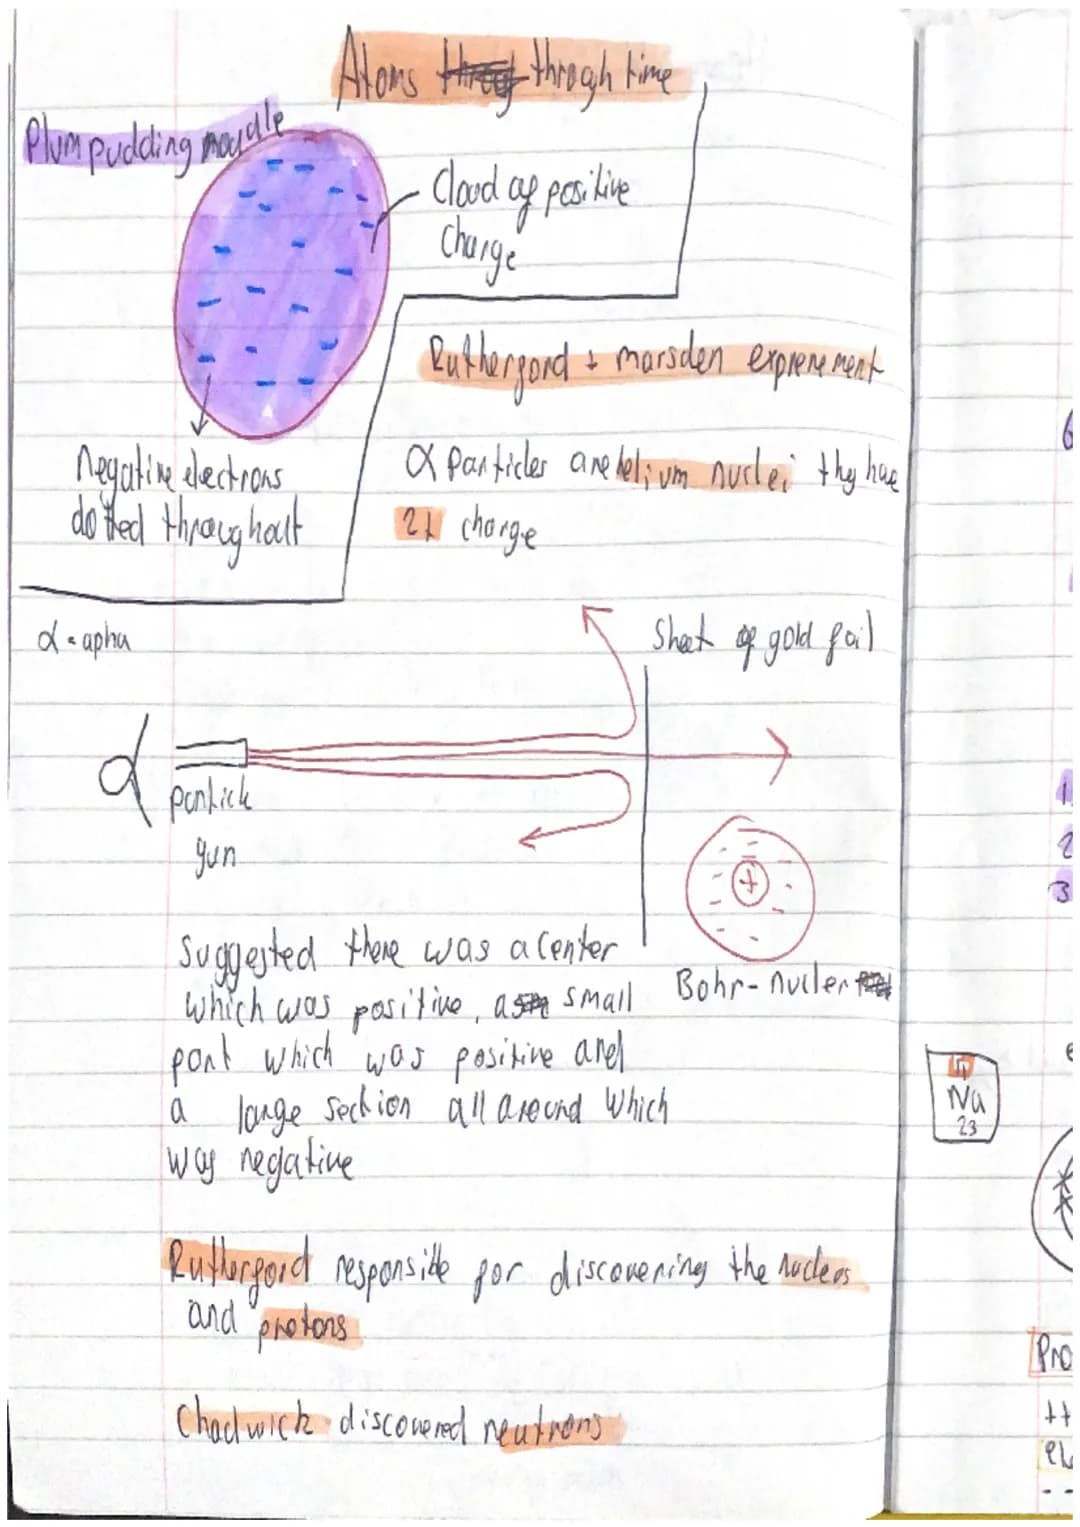 Atoms throgh time
Plum pudding moudle
Cloud of positive
Charge
Negative electrons
dotted throughout
Rutherford + marsden exprement
α particles are helium nuclei thy have
2+ charge
α = apha
Sheet of gold foil
α
particle
gun
+
Bohr-nucler
Suggested there was a center
which was positive, a small
part which was positive and
a large section all around which
was negative
Rutherford responsible for discovering the nucleos
and protons
Chadwick discovered neutrons
1
2
3
Na
23
Pro
++